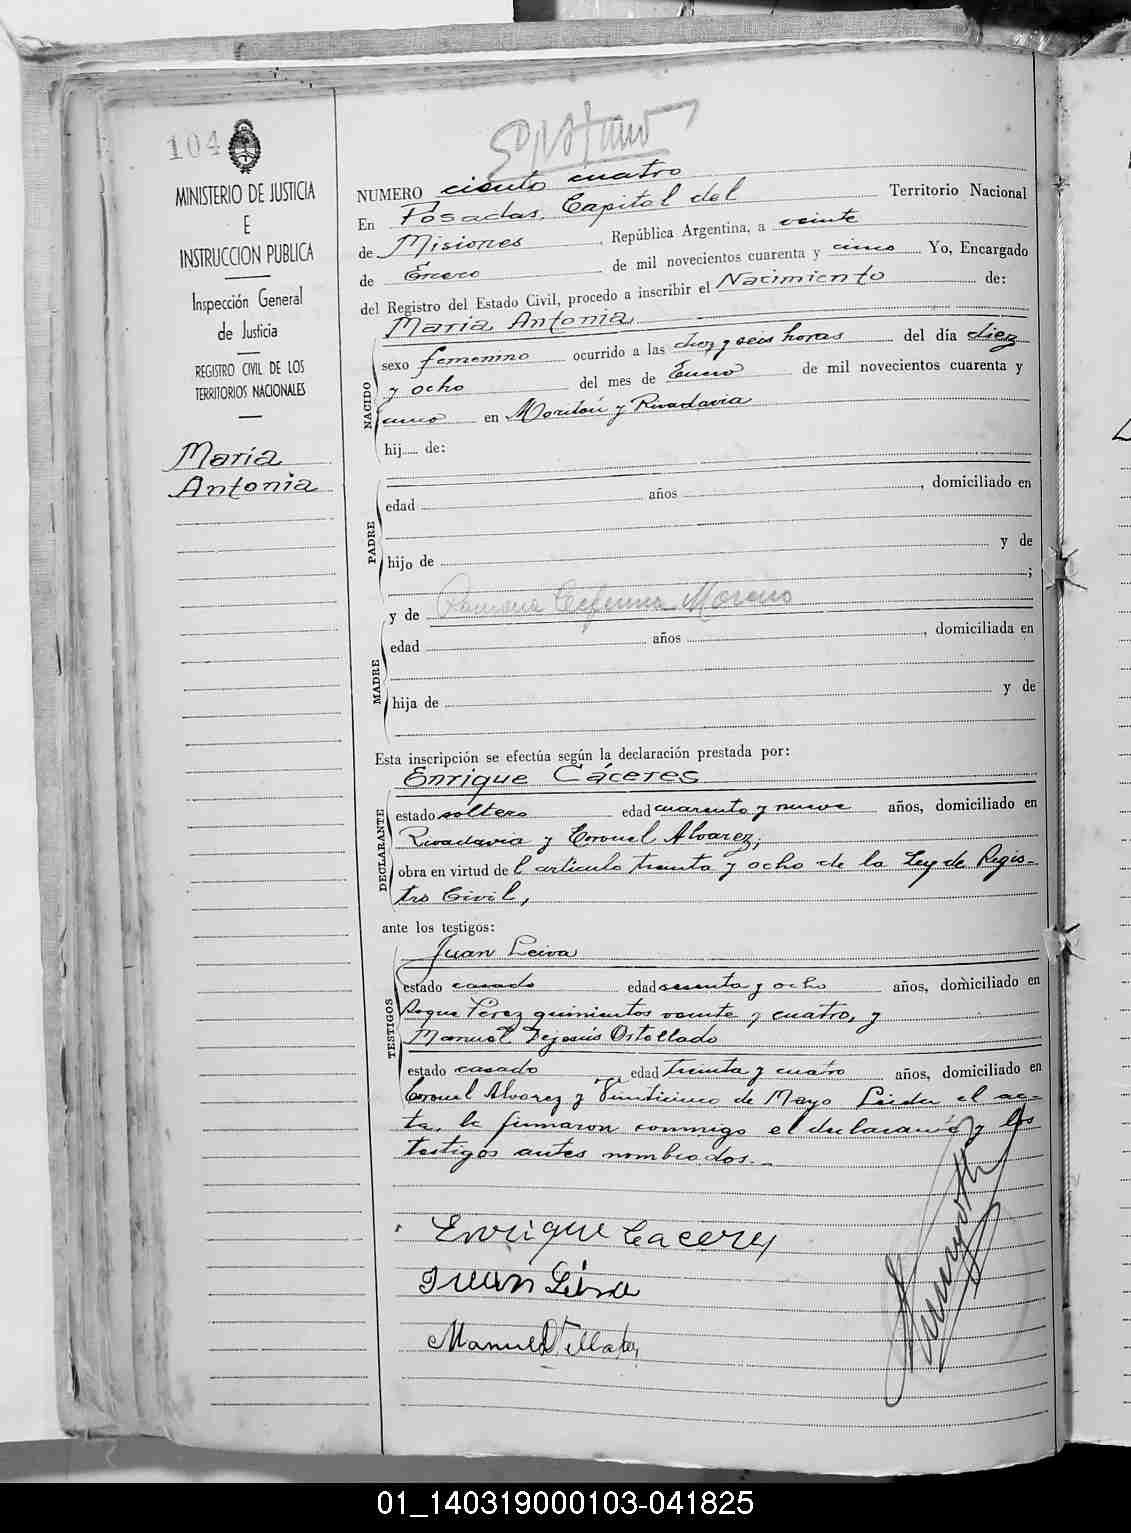 104
MINISTERIO DE JUSTICIA
E
INSTRUCCION PUBLICA
Inspección General
de Justicia
REGISTRO CIVIL DE LOS
TERRITORIOS NACIONALES
María
Antonia
NUMERO ciento cuatro
En Posadas, Capital del Territorio Nacional
de Misiones, República Argentina, a veinte
de Enero de mil novecientos cuarenta y cinco Yo, Encargado
del Registro del Estado Civil, procedo a inscribir el Nacimiento de:
María Antonia
NACIDO
sexo femenino ocurrido a las diez y seis horas del día diez
y ocho del mes de Enero de mil novecientos cuarenta y
cinco en y Rivadavia
hij de:
PADRE
edad años , domiciliado en
hijo de y de
;
y de Ramona Ceferina Moreno
MADRE
edad años , domiciliada en
hija de y de
Esta inscripción se efectúa según la declaración prestada por:
Enrique Cáceres
DECLARANTE
estado soltero edad cuarenta y nueve años, domiciliado en
Rivadavia y Coronel Alvarez;
obra en virtud del artículo treinta y ocho de la Ley de Regis-
tro Civil,
ante los testigos:
Juan Leiva
TESTIGOS
estado casado edad y ocho años, domiciliado en
Roque Perez quinientos veinte y cuatro, y
Manuel Dejesús
estado casado edad treinta y cuatro años, domiciliado en
Coronel Alvarez y Veinticinco de Mayo Leida el ac-
ta, la firmaron conmigo el declarante y los
testigos antes nombrados.-
Enrique Caceres
Juan Leiva
Manuel
01_140319000103-041825